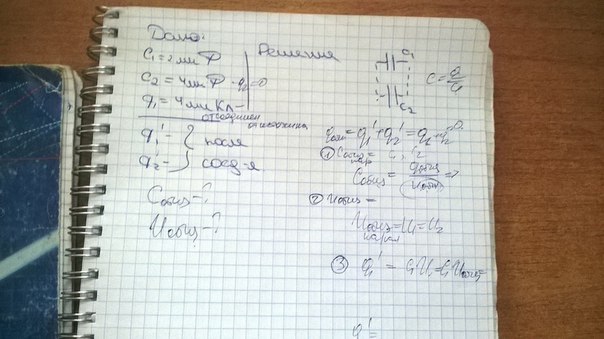 Дано:
C₁ = 2 мкФ
C₂ = 4 мкФ - q₂ = 0
q₁ = 4 мкКл -
отсоединен от источника
q₁' - } после
q₂' - } соед-я
Cобщ - ?
Uобщ - ?
Решения
C₁
C₂
C = q/U
qобщ = q₁' + q₂' = q₁ + q₂
① Cобщ = C₁, C₂
пар
Cобщ = qобщ/Uобщ =>
② Uобщ =
Uобщ = U₁ = U₂
парал
③ q₁' = C₁U₁ = C₁Uобщ =
q' =